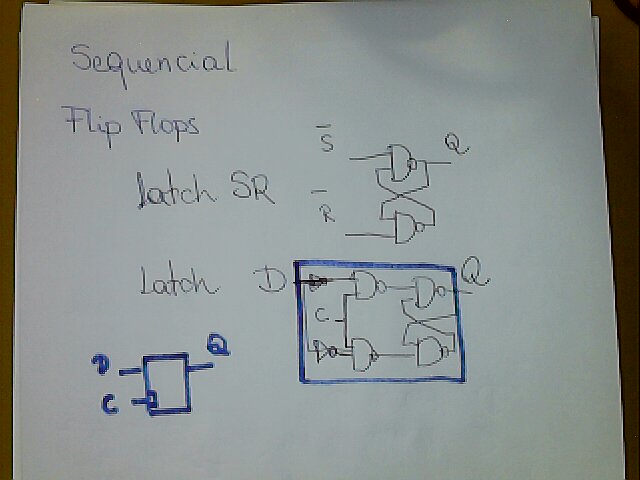 Sequencial
Flip Flops
S̅ Q
Latch SR
R̅
Latch D Q
C
D Q
C